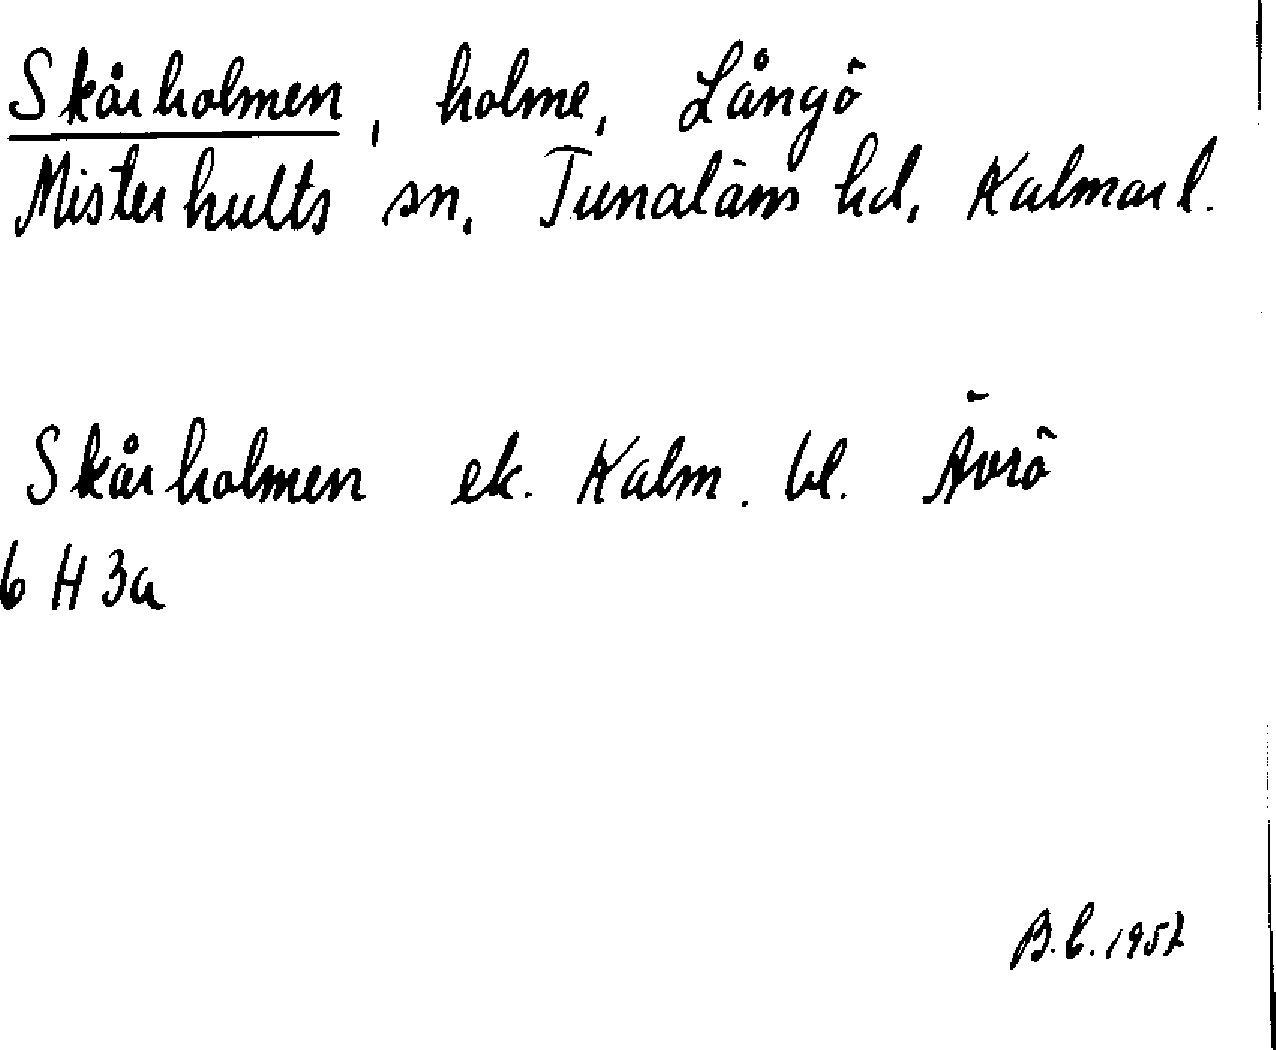 Skårholmen, holme, Långö
Misterhults sn, Tunaläns hd, Kalmar l.
Skårholmen ek. Kalm. bl. Ävrö
6 H 3a
B.C. 1957